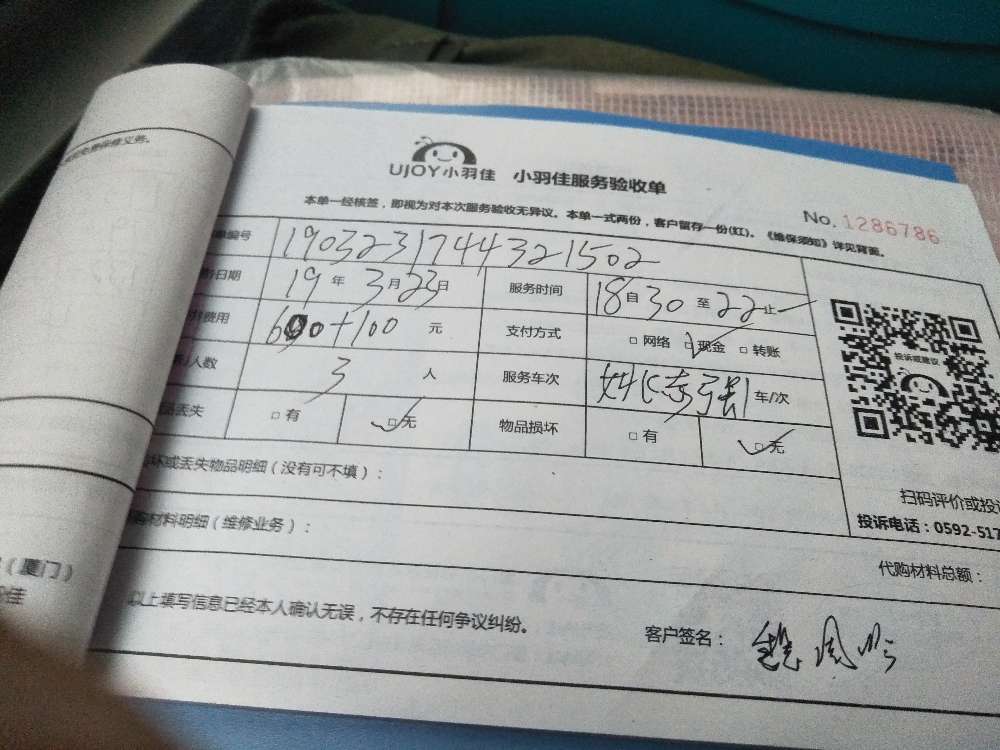 UJOY小羽佳 小羽佳服务验收单
本单一经核签，即视为对本次服务验收无异议。本单一式两份，客户留存一份(红)。《维保须知》详见背面。
No. 1286786
编号 1903231744321502
日期 19年3月23日 服务时间 18自30至22止
费用 600+100 元 支付方式 □网络 □现金 □转账
人数 3 人 服务车次 车/次
丢失 □有 □无 物品损坏 □有 □无
投诉或建议
坏或丢失物品明细（没有可不填）：
扫码评价或投
购材料明细（维修业务）：
投诉电话：0592-517
代购材料总额：
以上填写信息已经本人确认无误，不存在任何争议纠纷。
客户签名：
免费保修义务。
（厦门）
佳